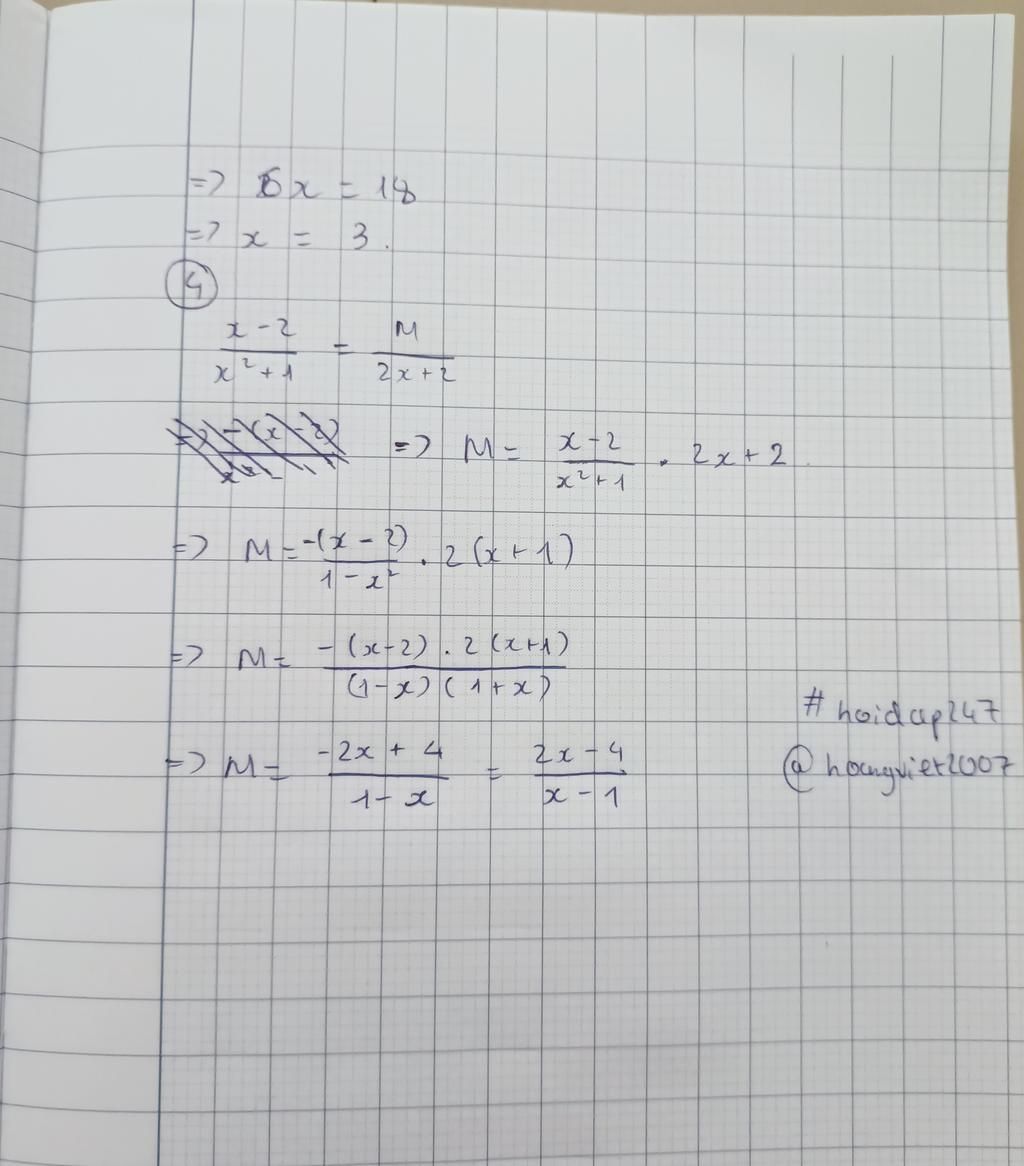 => 6x = 18
=> x = 3.
4
(x-2)/(x²+1) = M/(2x+2)
=> M = (x-2)/(x²+1) . 2x+2.
=> M = -(x-2)/(1-x²) . 2(x+1)
=> M = -(x-2).2(x+1)/(1-x)(1+x)
=> M = (-2x+4)/(1-x) = (2x-4)/(x-1)
#hoidap247
@hoangviet2007